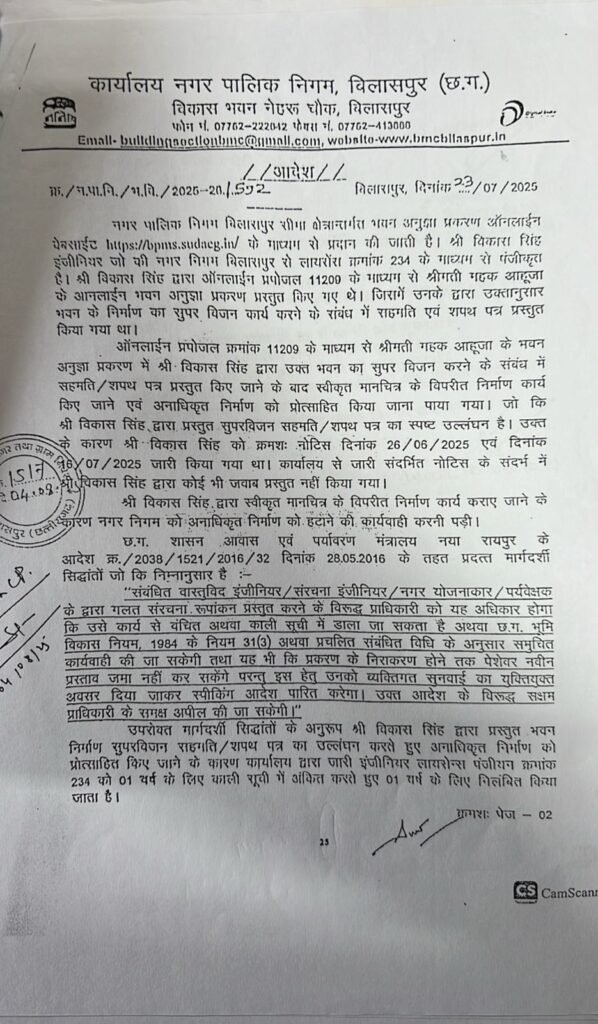 कार्यालय नगर पालिक निगम, विलासपुर (छ.ग.)
विकास भवन नेहरू चौक, विलासपुर
फोन नं. 07752-222642 फेक्स नं. 07752-413000
Email- buildingsectionbmc@gmail.com, website-www.bmcbilaspur.in
//आदेश//
क्र./न.पा.नि./भ.वि./2025-26/592 बिलासपुर, दिनांक 23/07/2025
नगर पालिक निगम विलासपुर सीमा क्षेत्रान्तर्गत भवन अनुज्ञा प्रकरण ऑनलाईन
वेबसाईट https://bpms.sudacg.in/ के माध्यम से प्रदान की जाती है। श्री विकास सिंह
इंजीनियर जो की नगर निगम विलासपुर से लायसेंस क्रमांक 234 के माध्यम से पंजीकृत
है। श्री विकास सिंह द्वारा ऑनलाईन प्रपोजल 11209 के माध्यम से श्रीमती महक आहूजा
के आनलाईन भवन अनुज्ञा प्रकरण प्रस्तुत किए गए थे। जिसमें उनके द्वारा उक्तानुसार
भवन के निर्माण का सुपर विजन कार्य करने के संबंध में सहमति एवं शपथ पत्र प्रस्तुत
किया गया था।
ऑनलाईन प्रपोजल क्रमांक 11209 के माध्यम से श्रीमती महक आहूजा के भवन
अनुज्ञा प्रकरण में श्री विकास सिंह द्वारा उक्त भवन का सुपर विजन करने के संबंध में
सहमति/शपथ पत्र प्रस्तुत किए जाने के बाद स्वीकृत मानचित्र के विपरीत निर्माण कार्य
किए जाने एवं अनाधिकृत निर्माण को प्रोत्साहित किया जाना पाया गया। जो कि
श्री विकास सिंह द्वारा प्रस्तुत सुपरविजन सहमति/शपथ पत्र का स्पष्ट उल्लंघन है। उक्त
के कारण श्री विकास सिंह को क्रमशः नोटिस दिनांक 26/06/2025 एवं दिनांक
16/07/2025 जारी किया गया था। कार्यालय से जारी संदर्भित नोटिस के संदर्भ में
श्री विकास सिंह द्वारा कोई भी जवाब प्रस्तुत नहीं किया गया।
श्री विकास सिंह द्वारा स्वीकृत मानचित्र के विपरीत निर्माण कार्य कराए जाने के
कारण नगर निगम को अनाधिकृत निर्माण को हटाने की कार्यवाही करनी पड़ी।
छ.ग. शासन आवास एवं पर्यावरण मंत्रालय नया रायपुर के
आदेश क्र./2038/1521/2016/32 दिनांक 28.05.2016 के तहत प्रदत्त मार्गदर्शी
सिद्धांतों जो कि निम्नानुसार है :–
"संबंधित वास्तुविद इंजीनियर/संरचना इंजीनियर/नगर योजनाकार/पर्यवेक्षक
के द्वारा गलत संरचना रूपांकन प्रस्तुत करने के विरूद्ध प्राधिकारी को यह अधिकार होगा
कि उसे कार्य से वंचित अथवा काली सूची में डाला जा सकता है अथवा छ.ग. भूमि
विकास नियम, 1984 के नियम 31(3) अथवा प्रचलित संबंधित विधि के अनुसार समुचित
कार्यवाही की जा सकेगी तथा यह भी कि प्रकरण के निराकरण होने तक पेशेवर नवीन
प्रस्ताव जमा नहीं कर सकेंगे परन्तु इस हेतु उनको व्यक्तिगत सुनवाई का युक्तियुक्त
अवसर दिया जाकर स्पीकिंग आदेश पारित करेगा। उक्त आदेश के विरूद्ध सक्षम
प्राधिकारी के समक्ष अपील की जा सकेगी।"
उपरोक्त मार्गदर्शी सिद्धांतों के अनुरूप श्री विकास सिंह द्वारा प्रस्तुत भवन
निर्माण सुपरविजन सहमति/शपथ पत्र का उल्लंघन करते हुए अनाधिकृत निर्माण को
प्रोत्साहित किए जाने के कारण कार्यालय द्वारा जारी इंजीनियर लायसेन्स पंजीयन क्रमांक
234 को 01 वर्ष के लिए काली सूची में अंकित करते हुए 01 वर्ष के लिए निलंबित किया
जाता है।
क्रमशः पेज – 02
25
CS CamScann